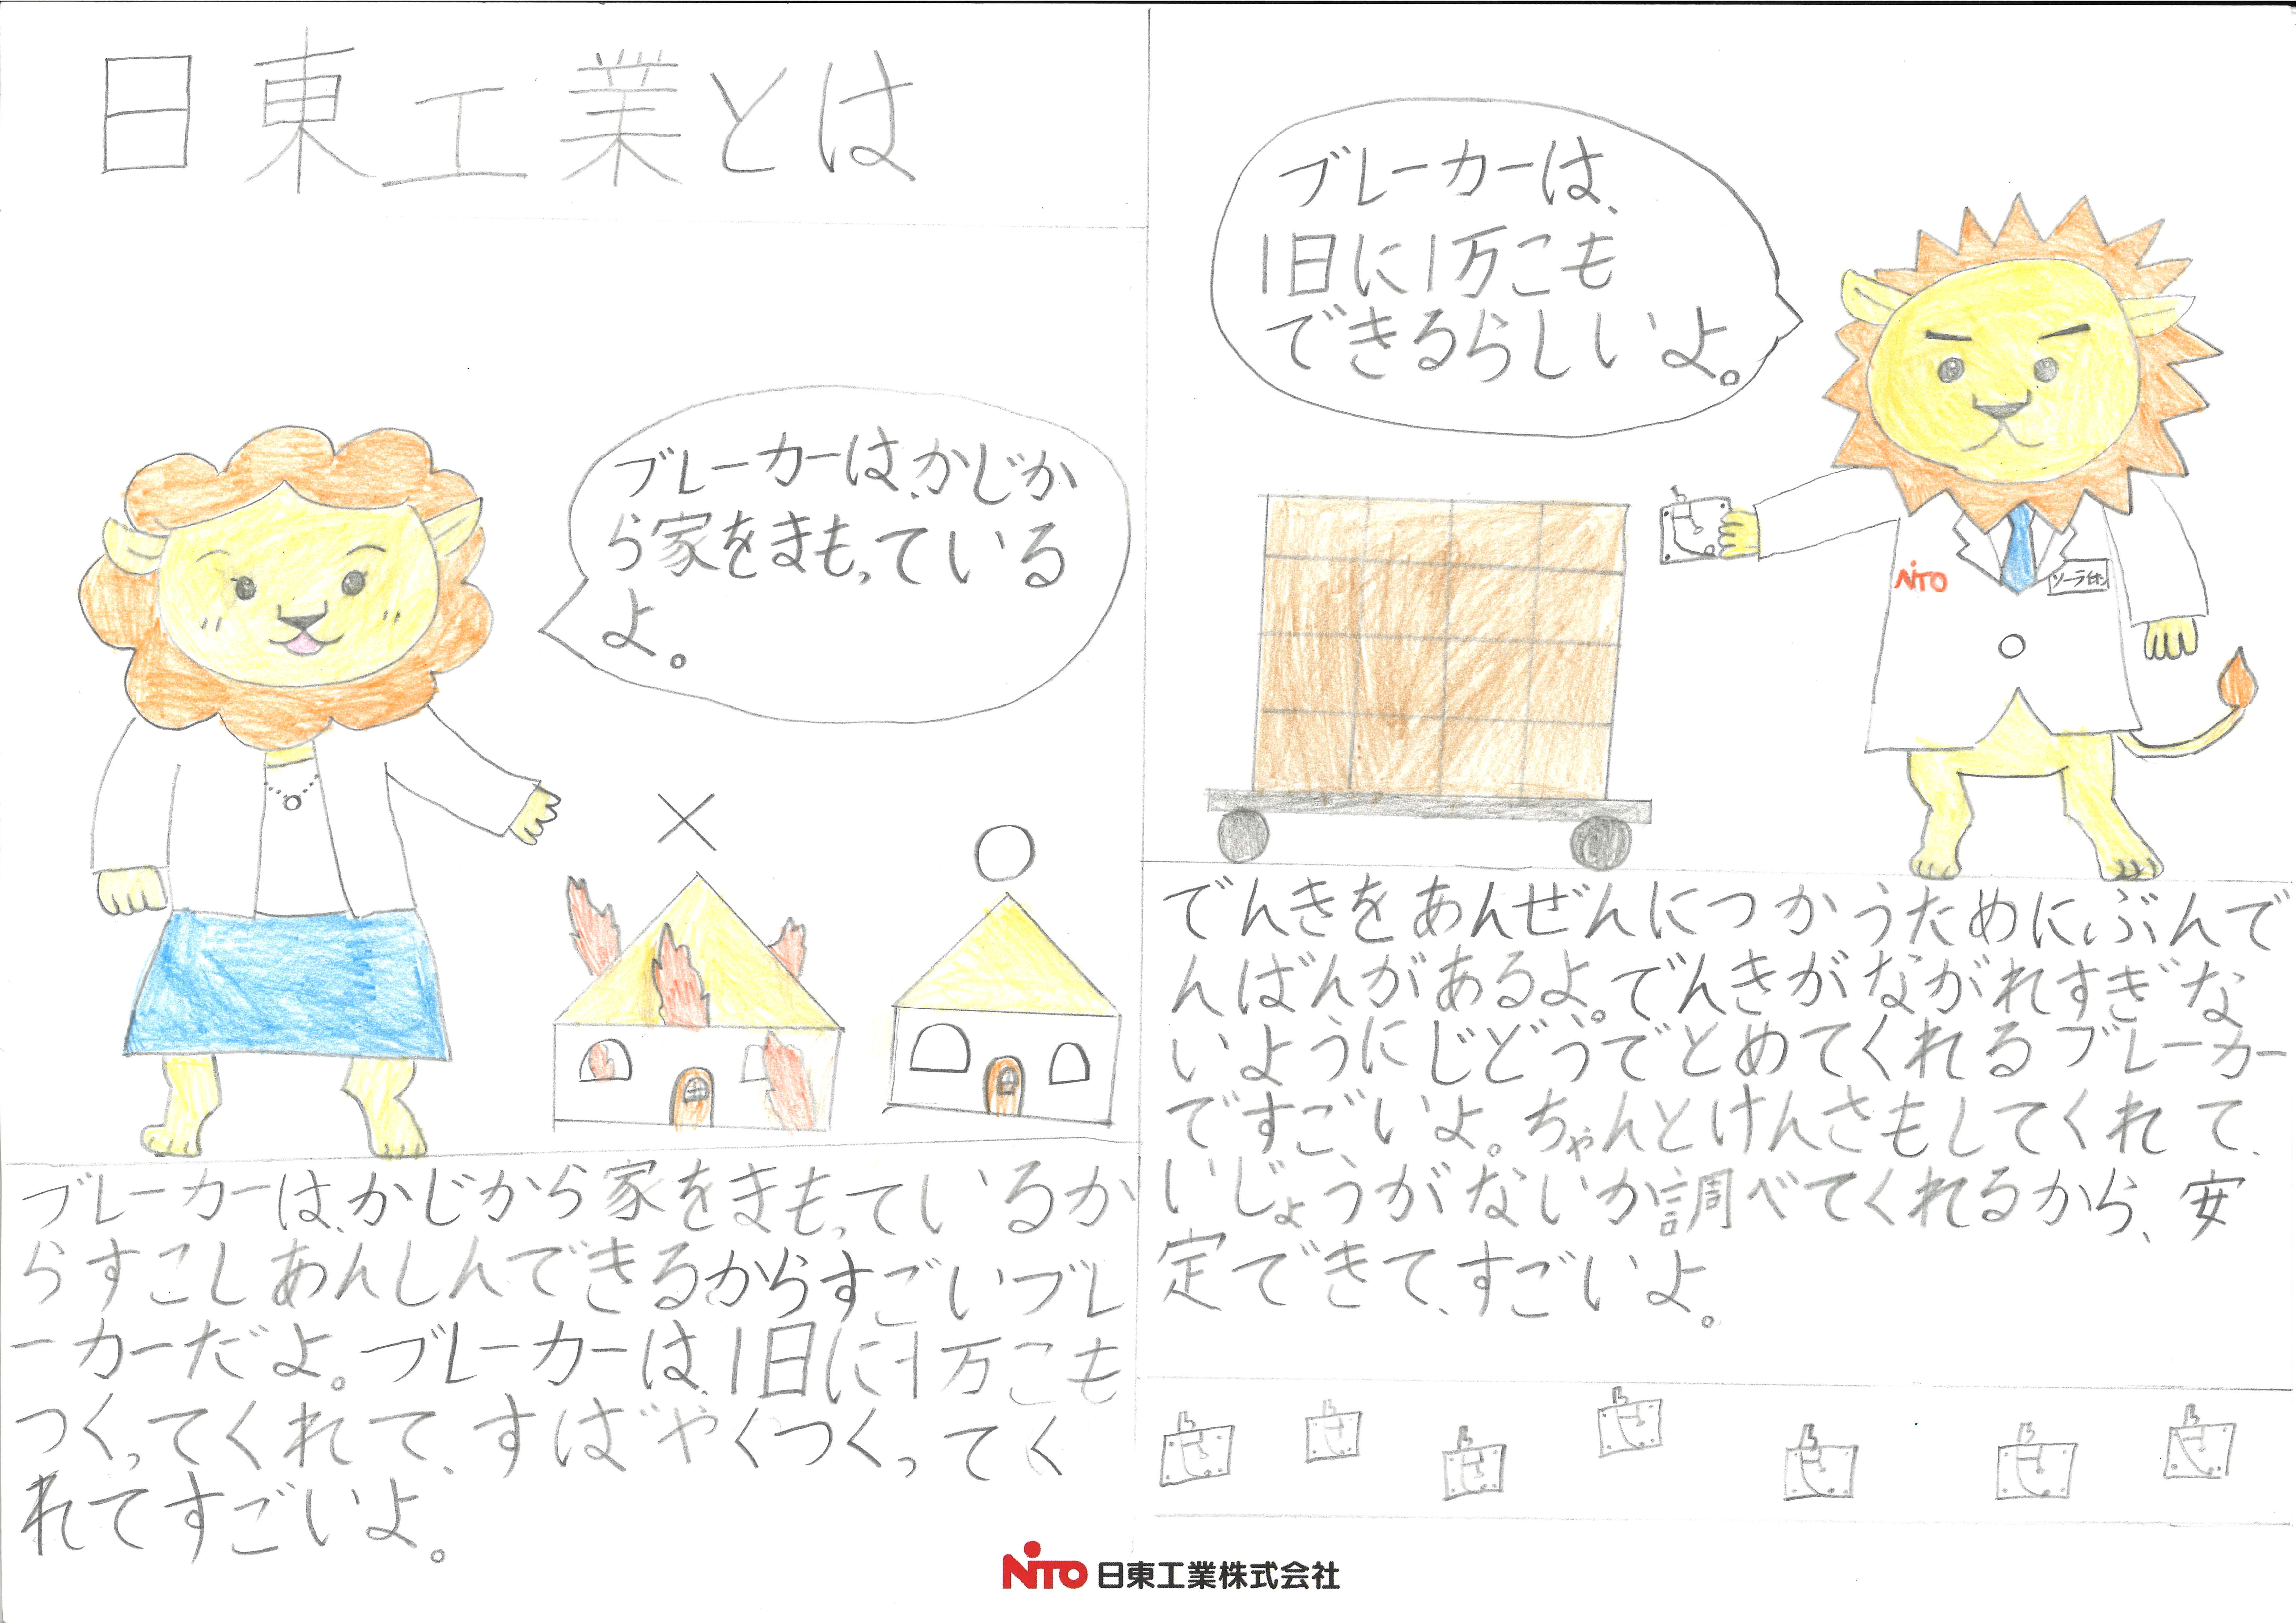 日東工業とは
ブレーカーは、かじか
ら家をまもっている
よ。
ブレーカーは、かじから家をまもっているか
らすこしあんしんできるからすごいブレ
ーカーだよ。ブレーカーは、1日に1万こも
つくってくれて、すばやくつくってく
れてすごいよ。
ブレーカーは、
1日に1万こも
できるらしいよ。
NiTO
ソーライオン
でんきをあんぜんにつかうために、ぶんで
んばんがあるよ。でんきがながれすぎな
いようにじどうでとめてくれるブレーカー
ですごいよ。ちゃんとけんさもしてくれて、
いじょうがないか調べてくれるから、安
定できて、すごいよ。
NiTO 日東工業株式会社